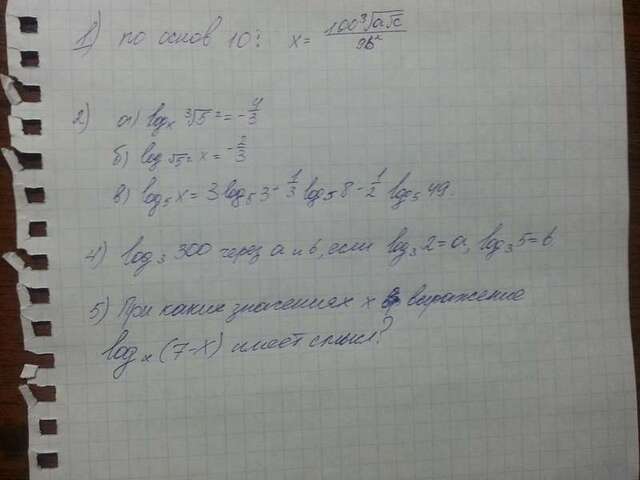 1) по основ 10: x = 100∛a√c / 9b²
2) а) logₓ ∛5² = -4/3
б) log_√5 x = -2/3
в) log₅ x = 3 log₅ 3 - 1/3 log₅ 8 - 1/2 log₅ 49.
4) log₃ 300 через a и b, если log₃ 2 = a, log₃ 5 = b
5) При каких значениях x выражение
logₓ (7-x) имеет смысл?